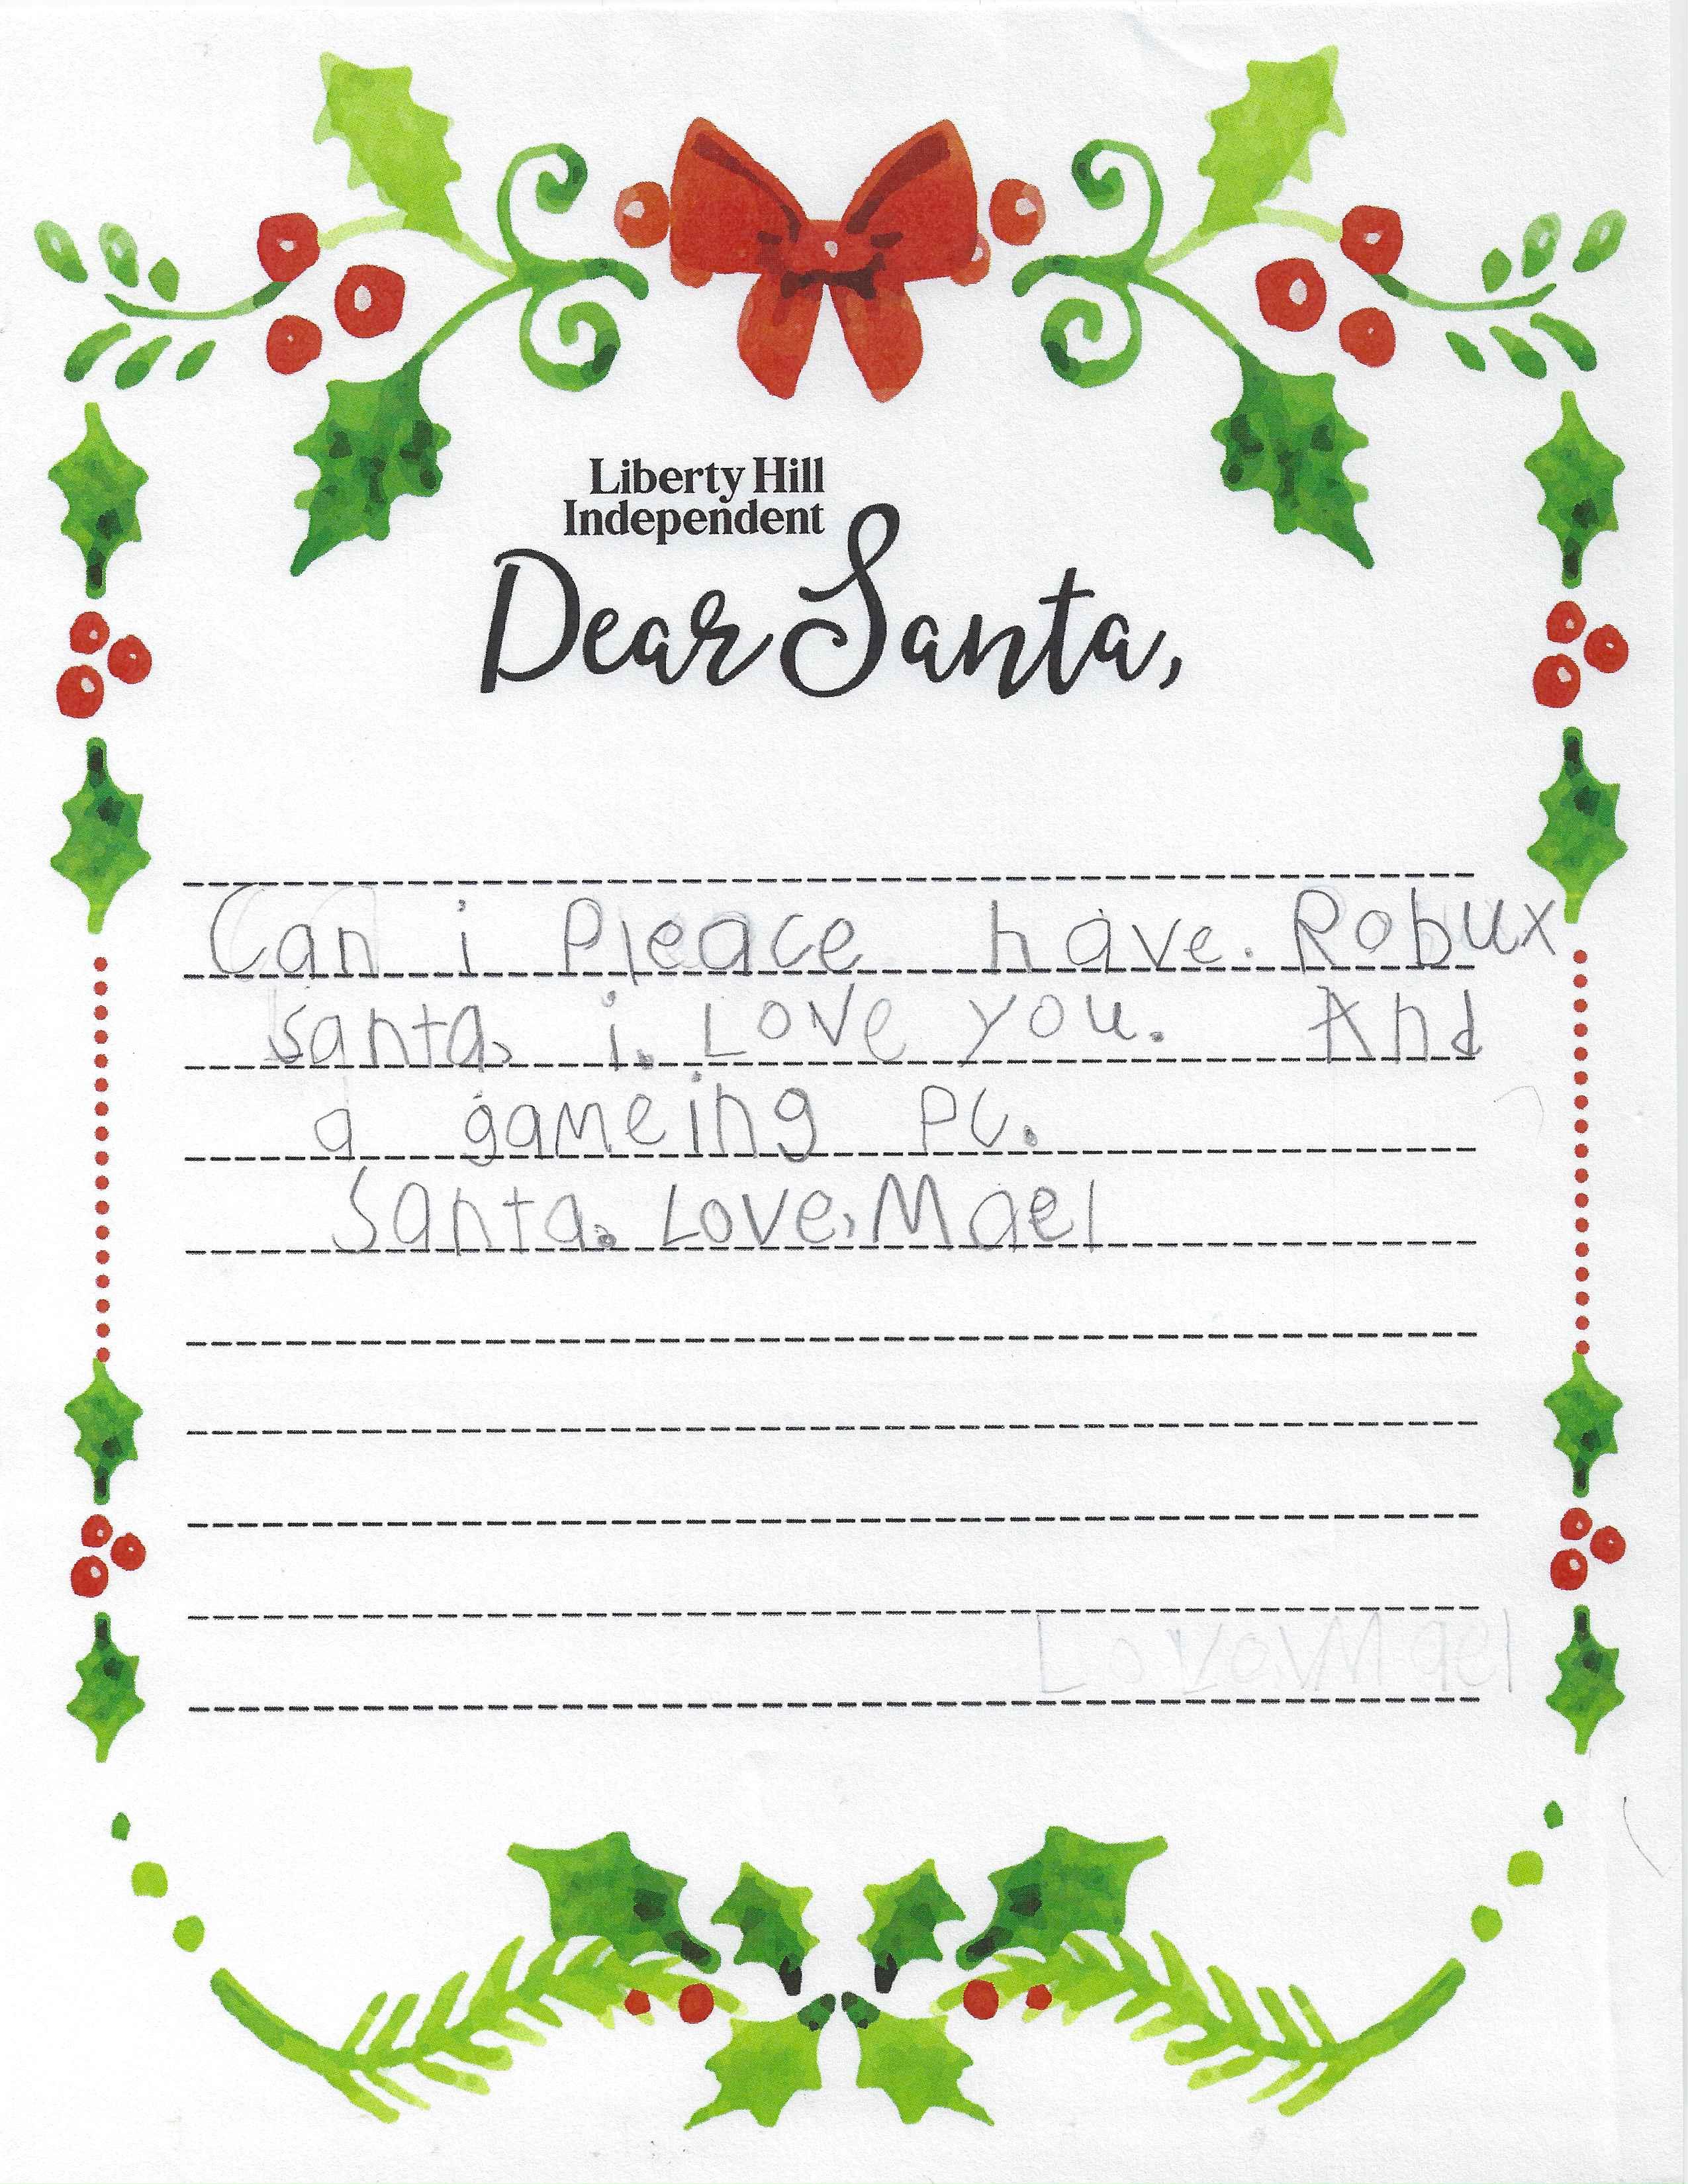 Liberty Hill
Independent
Dear Santa,
Can i Pleace have. Robux
santa, i. Love you. And
a gameing pc.
Santa. Love, Mael
Love, Mael